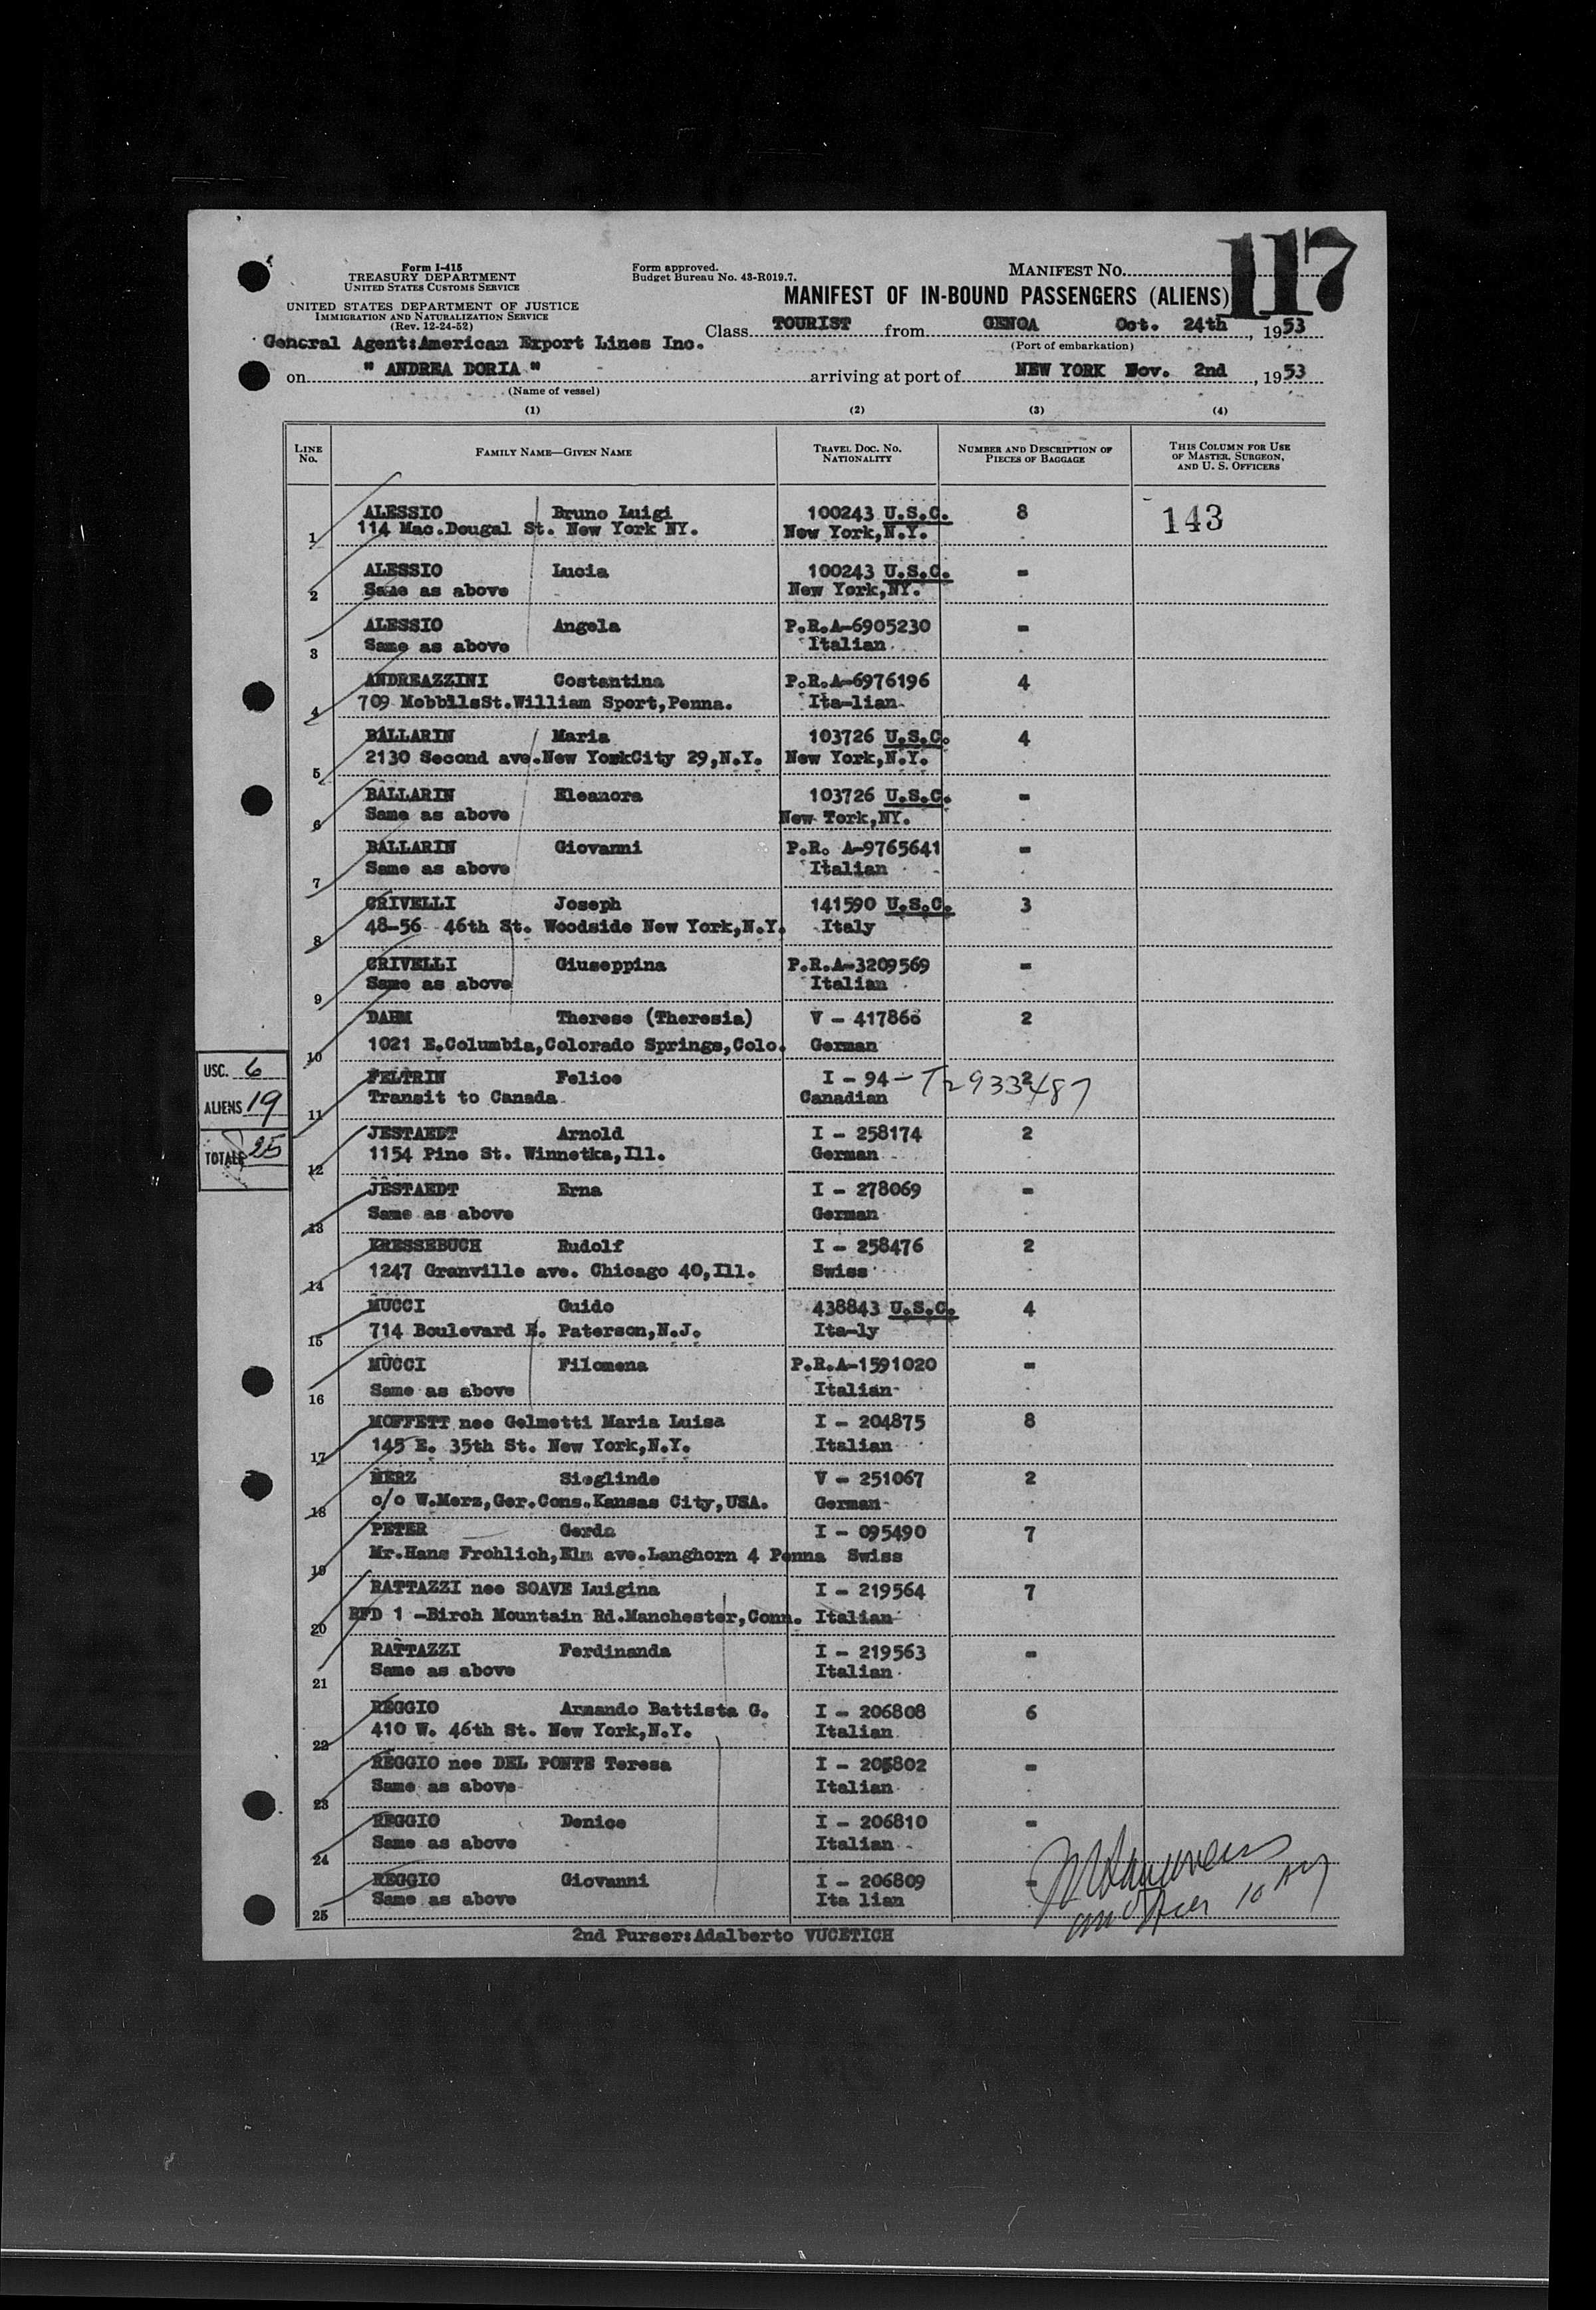 117
Form I-415
TREASURY DEPARTMENT
UNITED STATES CUSTOMS SERVICE
UNITED STATES DEPARTMENT OF JUSTICE
IMMIGRATION AND NATURALIZATION SERVICE
(Rev. 12-24-52)
Form approved.
Budget Bureau No. 43-R019.7.
MANIFEST No.
MANIFEST OF IN-BOUND PASSENGERS (ALIENS)
General Agent:American Export Lines Inc.
Class TOURIST from GENOA Oct. 24th, 1953
(Port of embarkation)
on " ANDREA DORIA " arriving at port of NEW YORK Nov. 2nd, 1953
(Name of vessel)
(1) (2) (3) (4)
LINE No. FAMILY NAME—GIVEN NAME TRAVEL DOC. NO. NATIONALITY NUMBER AND DESCRIPTION OF PIECES OF BAGGAGE THIS COLUMN FOR USE OF MASTER, SURGEON, AND U. S. OFFICERS
ALESSIO Bruno Luigi 100243 U.S.C. 8 143
1 114 Mac.Dougal St. New York NY. New York,N.Y.
ALESSIO Lucia 100243 U.S.C. -
2 Same as above New York,NY.
ALESSIO Angela P.R.A-6905230 -
3 Same as above Italian
ANDREAZZINI Costantina P.R.A-6976196 4
4 709 MobbilsSt.William Sport,Penna. Ita-lian
BALLARIN Maria 103726 U.S.C. 4
5 2130 Second ave.New YorkCity 29,N.Y. New York,N.Y.
BALLARIN Eleanora 103726 U.S.C. -
6 Same as above New Tork,NY.
BALLARIN Giovanni P.R. A-9765641 -
7 Same as above Italian
CRIVELLI Joseph 141590 U.S.C. 3
8 48-56 46th St. Woodside New York,N.Y. Italy
CRIVELLI Giuseppina P.R.A-3209569 -
9 Same as above Italian
DAHM Therese (Theresia) V - 417866 2
10 1021 E.Columbia,Colorado Springs,Colo. German
USC. 6
ALIENS 19
TOTALS 25
FELTRIN Felice I - 94 - T2933487 2
11 Transit to Canada Canadian
JESTAEDT Arnold I - 258174 2
12 1154 Pine St. Winnetka,Ill. German
JESTAEDT Erna I - 278069 -
13 Same as above German
KRESSEBUCH Rudolf I - 258476 2
14 1247 Granville ave. Chicago 40,Ill. Swiss
MUCCI Guido 438843 U.S.C. 4
15 714 Boulevard E. Paterson,N.J. Ita-ly
MUCCI Filomena P.R.A-1591020 -
16 Same as above Italian
MOFFETT nee Gelmetti Maria Luisa I - 204875 8
17 145 E. 35th St. New York,N.Y. Italian
MERZ Sieglinde V - 251067 2
18 c/o W.Merz,Ger.Cons.Kansas City,USA. German
PETER Gerda I - 095490 7
19 Mr.Hans Frohlich,Elm ave.Langhorn 4 Penna Swiss
RATTAZZI nee SOAVE Luigina I - 219564 7
20 RFD 1 -Birch Mountain Rd.Manchester,Conn. Italian
RATTAZZI Ferdinanda I - 219563 -
21 Same as above Italian
REGGIO Armando Battista G. I - 206808 6
22 410 W. 46th St. New York,N.Y. Italian
REGGIO nee DEL PONTE Teresa I - 205802 -
23 Same as above Italian
REGGIO Denice I - 206810 -
24 Same as above Italian
REGGIO Giovanni I - 206809 -
25 Same as above Ita lian
2nd Purser:Adalberto VUCETICH